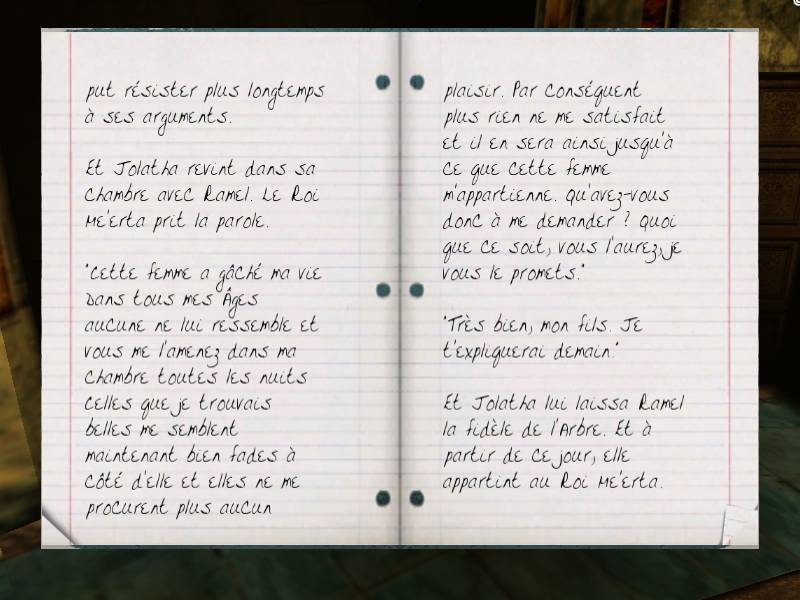 put résister plus longtemps
à ses arguments.
Et Jolatha revint dans sa
chambre avec Ramel. Le Roi
Me'erta prit la parole.
"Cette femme a gâché ma vie
Dans tous mes Âges
aucune ne lui ressemble et
vous me l'amenez dans ma
chambre toutes les nuits
celles que je trouvais
belles me semblent
maintenant bien fades à
côté d'elle et elles ne me
procurent plus aucun
plaisir. Par conséquent
plus rien ne me satisfait
et il en sera ainsi jusqu'à
ce que cette femme
m'appartienne. Qu'avez-vous
donc à me demander ? Quoi
que ce soit, vous l'aurez, je
vous le promets."
"Très bien, mon fils. Je
t'expliquerai demain."
Et Jolatha lui laissa Ramel
la fidèle de l'Arbre. Et à
partir de ce jour, elle
appartint au Roi Me'erta.